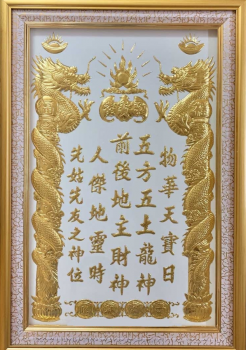 物華天寶日
五方五土龍神
前後地主財神
人傑地靈時
先姑先友之神位